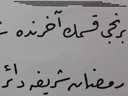 برنجی قسمك آخرنده
رمضان شریفه دائر